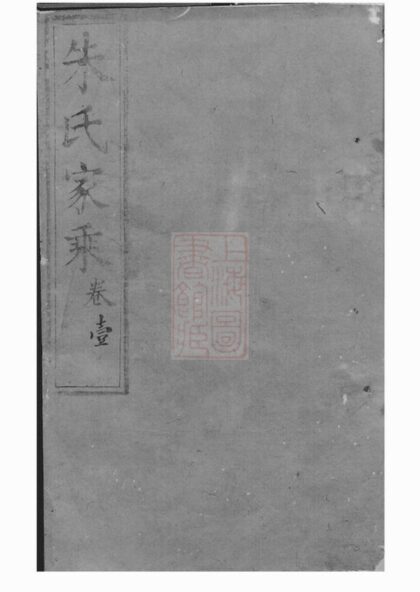 朱氏家乘卷壹
上海圖
書館藏